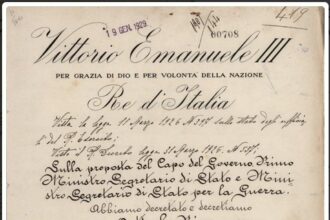 19 GEN. 1929
00708
419
Vittorio Emanuele III
PER GRAZIA DI DIO E PER VOLONTÀ DELLA NAZIONE
Re d'Italia
Vista la legge 11 Marzo 1926 N 397 sullo stato degli ufficiali
del R. Esercito;
Visto il R. Decreto 31 Marzo 1926 N.
Sulla proposta del Capo del Governo Primo
Ministro Segretario di Stato e Mini
stro Segretario di Stato per la Guerra.
Abbiamo decretato e decretiamo